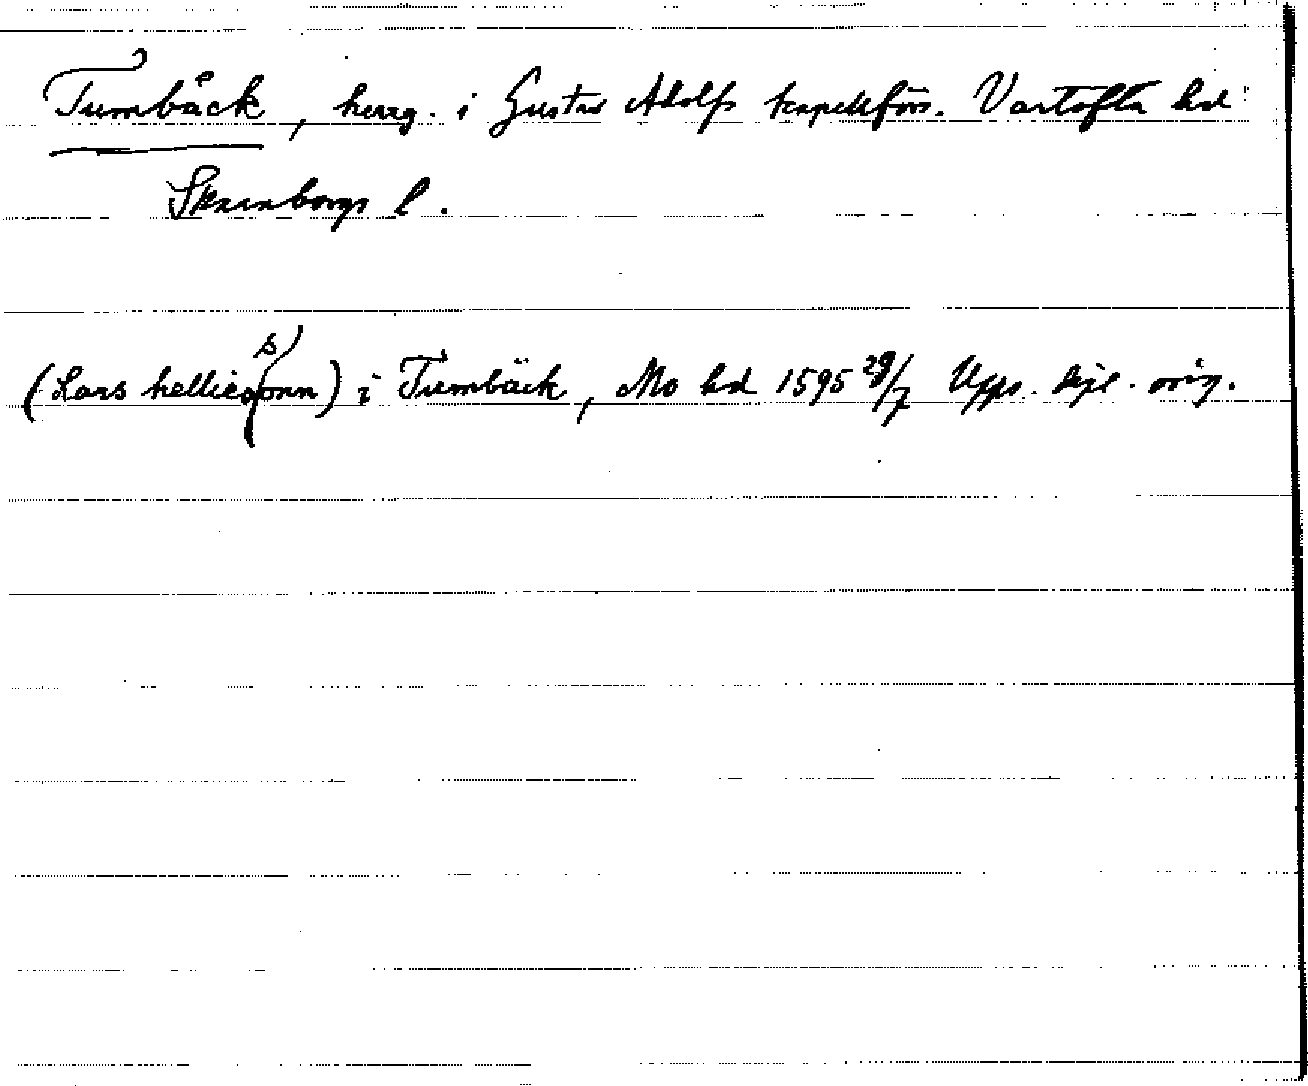 Tumbäck, herrg. i Gustav Adolfs kapellförs. Vartofta hd
Skaraborgs l.
(Lars helliesonn) i Tumbäck, Mo hd 1595 29/7 Upps. dipl. orig.